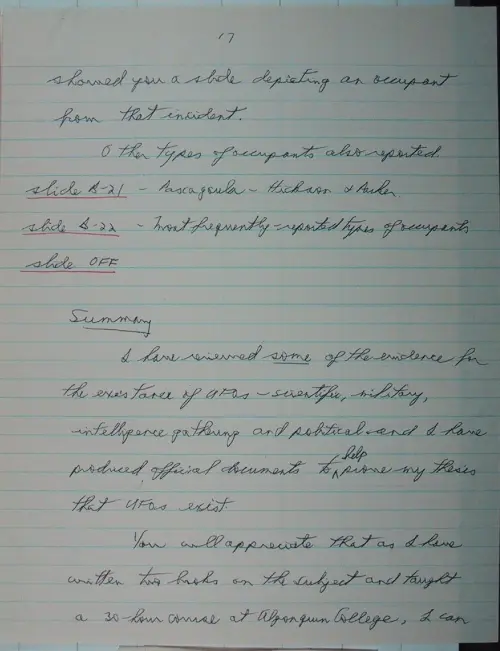 17
showed you a slide depicting an occupant
from that incident.
Other types of occupants also reported.
slide B-21 - Pascagoula - Hickson & Parker.
slide B-22 - Most frequently-reported types of occupants
slide OFF
Summary
I have reviewed some of the evidence for
the existance of UFOs - scientific, military,
intelligence gathering and political and I have
produced official documents to help prove my thesis
that UFOs exist.
You will appreciate that as I have
written two books on the subject and taught
a 30-hour course at Algonquin College, I can